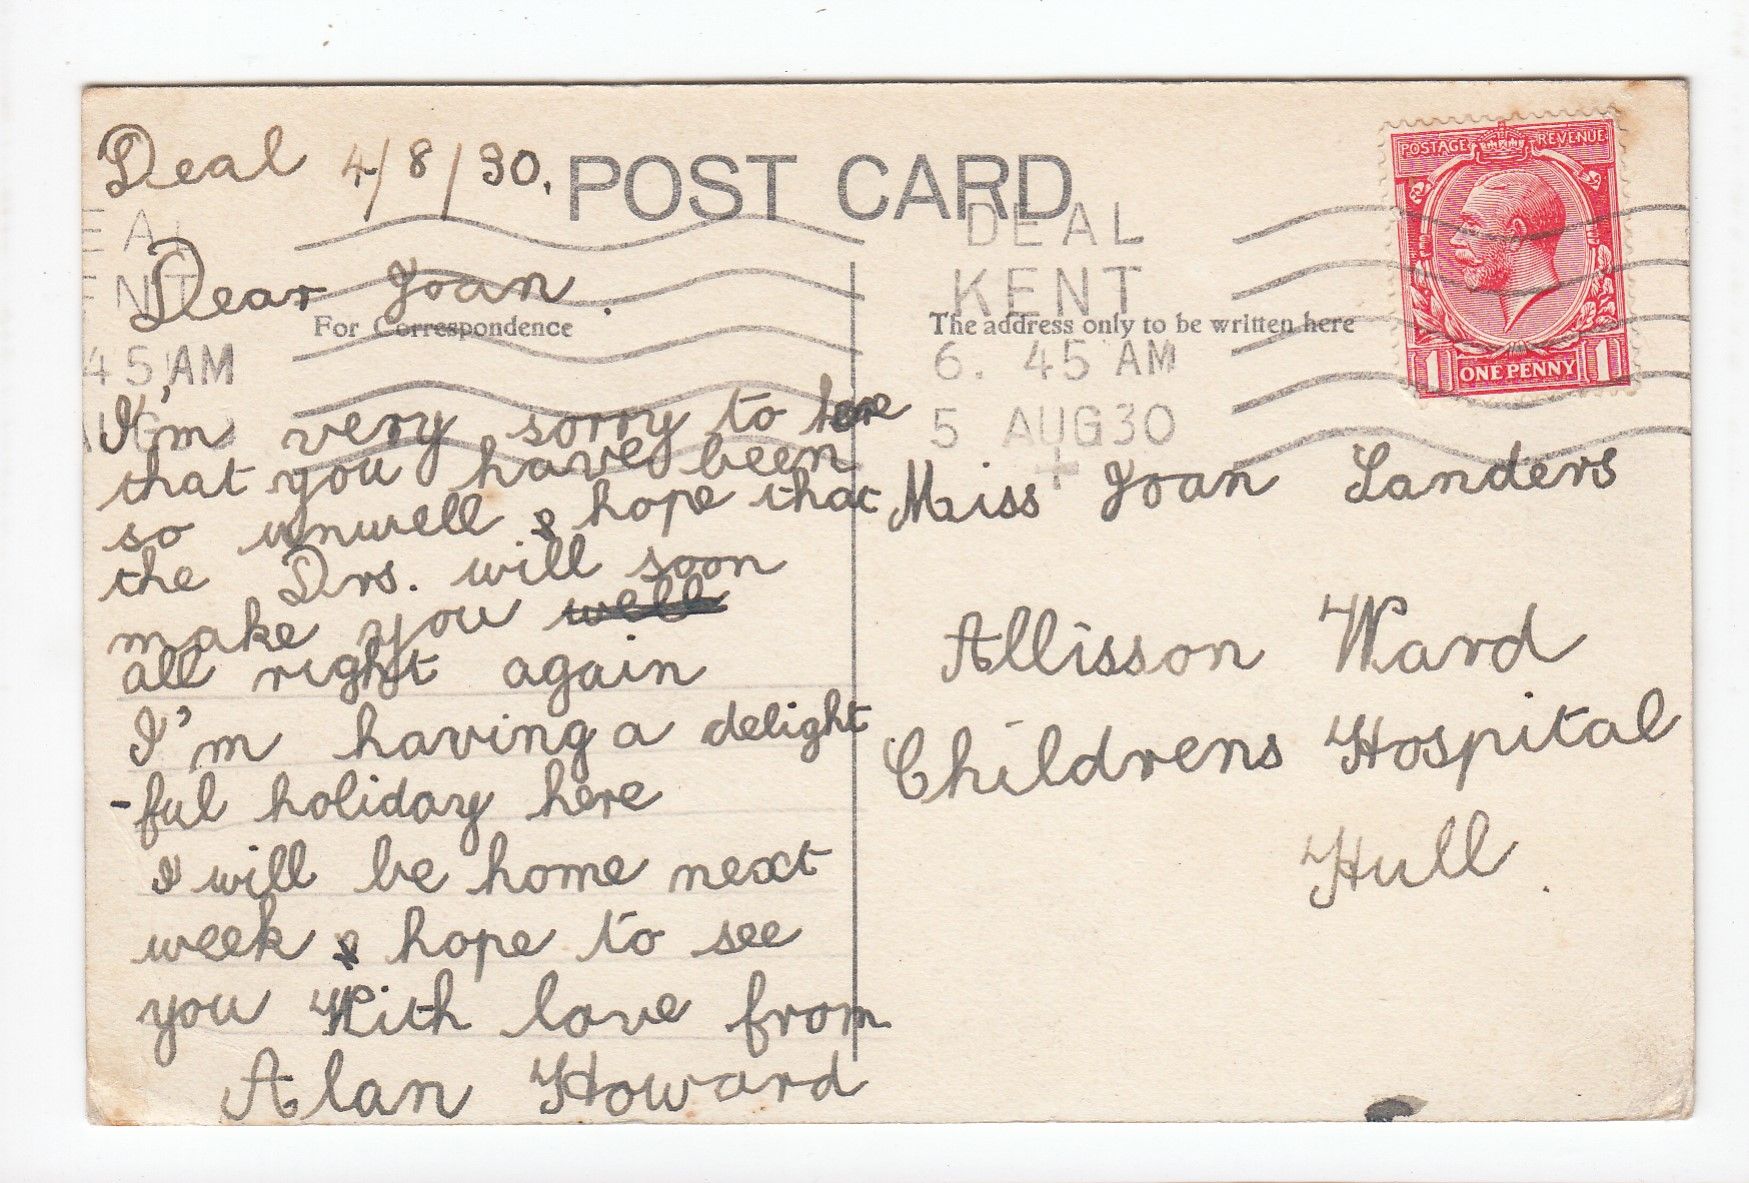 Deal 4/8/30.
POST CARD
POSTAGE REVENUE
1 ONE PENNY 1
DEAL
KENT
6. 45 AM
5 AUG 30
EAL
ENT
45 AM
AUG
Dear Joan.
For Correspondence
The address only to be written here
I'm very sorry to here
that you have been
so unwell & hope that
the Drs. will soon
make you well
all right again
I'm having a delight
-ful holiday here
I will be home next
week & hope to see
you With love from
Alan Howard
Miss Joan Landers
Allisson Ward
Childrens Hospital
Hull.